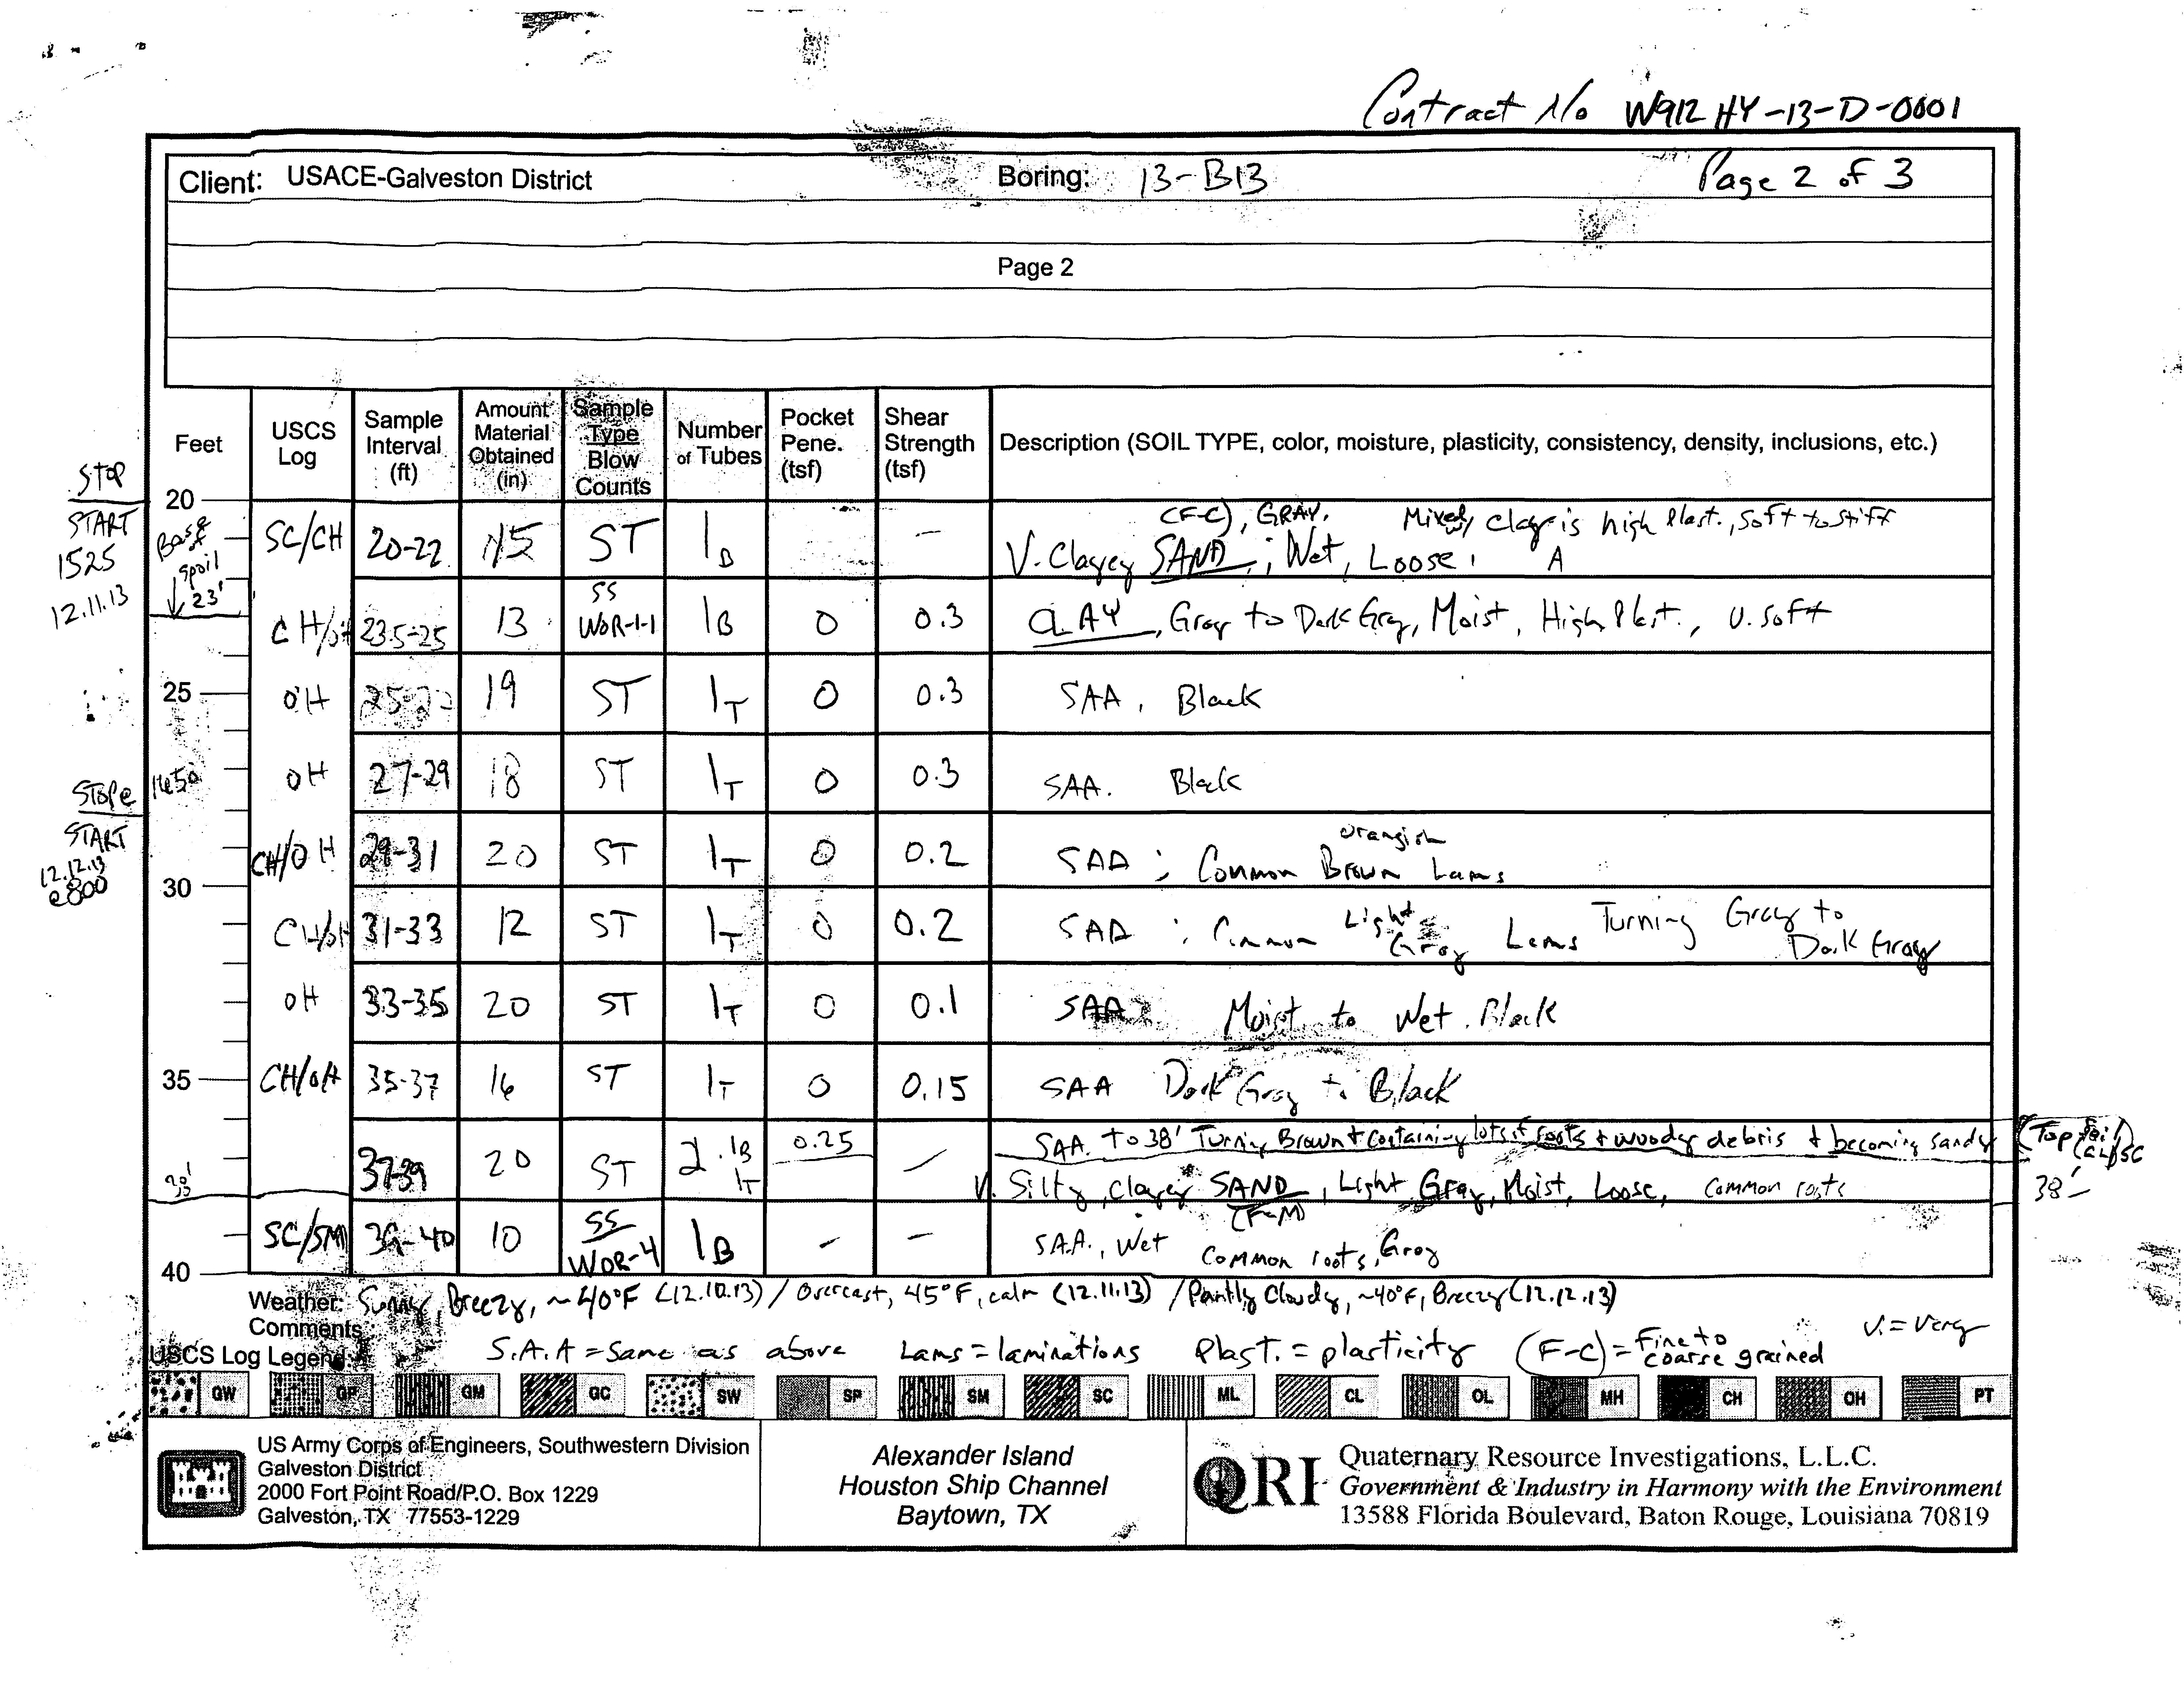 Contract No W912 HY-13-D-0001
Client: USACE-Galveston District Boring: 13-B13 Page 2 of 3
Page 2
Feet USCS Log Sample Interval (ft) Amount Material Obtained (in) Sample Type Blow Counts Number of Tubes Pocket Pene. (tsf) Shear Strength (tsf) Description (SOIL TYPE, color, moisture, plasticity, consistency, density, inclusions, etc.)
STOP
20
START 1525 12.11.13
Base of spoil 23'
SC/CH 20-22 15 ST 1B — V. Clayey SAND (F-C), GRAY, ; Wet, Loose, Mixed, clay is high Plast., soft to stiff A
CH/OH 23.5-25 13 SS WOR-1-1 1B 0 0.3 CLAY, Gray to Dark Gray, Moist, High Plast., V. Soft
25 OH 25-27 19 ST 1T 0 0.3 SAA, Black
OH 27-29 18 ST 1T 0 0.3 SAA. Black
STOP e 1650
START 12.12.13 e 800
CH/OH 29-31 20 ST 1T 0 0.2 SAA ; Common orangish Brown Lams
30
CH/OH 31-33 12 ST 1T 0 0.2 SAA ; Common Light Gray Lams Turning Gray to Dark Gray
OH 33-35 20 ST 1T 0 0.1 SAA Moist to Wet. Black
35 CH/OH 35-37 16 ST 1T 0 0.15 SAA Dark Gray to Black
37-39 20 ST 2 1B 1T 0.25 — SAA to 38' Turning Brown + Containing lots of roots + woody debris + becoming sandy (Top soil)
V. Silty, Clayey SAND (F-M), Light Gray, Moist, Loose, common roots 38'
38'
SC/SM 39-40 10 SS WOR-4 1B – – SAA., Wet Common roots, Gray
40
Weather: Sunny, Breezy, ~40°F (12.10.13) / Overcast, 45°F, calm (12.11.13) / Partly Cloudy, ~40°F, Breezy (12.12.13)
Comments: S.A.A = Same as above Lams = laminations Plast. = plasticity (F-C) = Fine to coarse grained V. = Very
USCS Log Legend:
GW GP GM GC SW SP SM SC ML CL OL MH CH OH PT
US Army Corps of Engineers, Southwestern Division
Galveston District
2000 Fort Point Road/P.O. Box 1229
Galveston, TX 77553-1229
Alexander Island
Houston Ship Channel
Baytown, TX
QRI
Quaternary Resource Investigations, L.L.C.
Government & Industry in Harmony with the Environment
13588 Florida Boulevard, Baton Rouge, Louisiana 70819